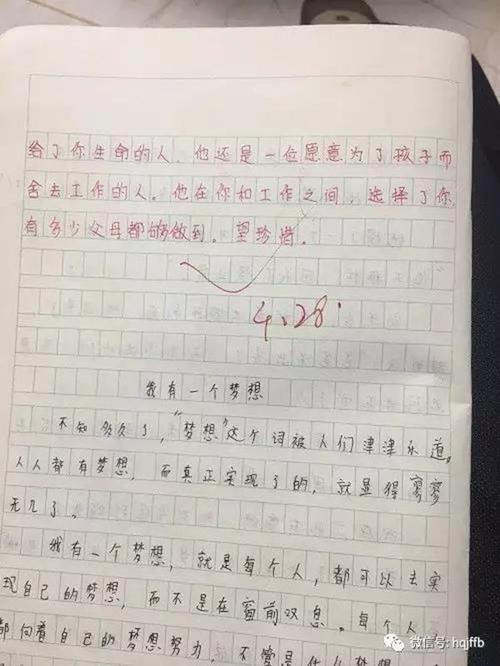 给了你生命的人，他还是一位愿意为了孩子而
舍去工作的人。他在你和工作之间，选择了你，
有多少父母都够做到。望珍惜。
4、28.
我有一个梦想
不知多久了，“梦想”这个词被人们津津乐道，
人人都有梦想，而真正实现了的，就显得寥寥
无几了。
我有一个梦想，就是每个人，都可以去实
现自己的梦想，而不是在窗前叹息。每个人
都向着自己的梦想努力，不管是什么梦想
微信号: hqjffb